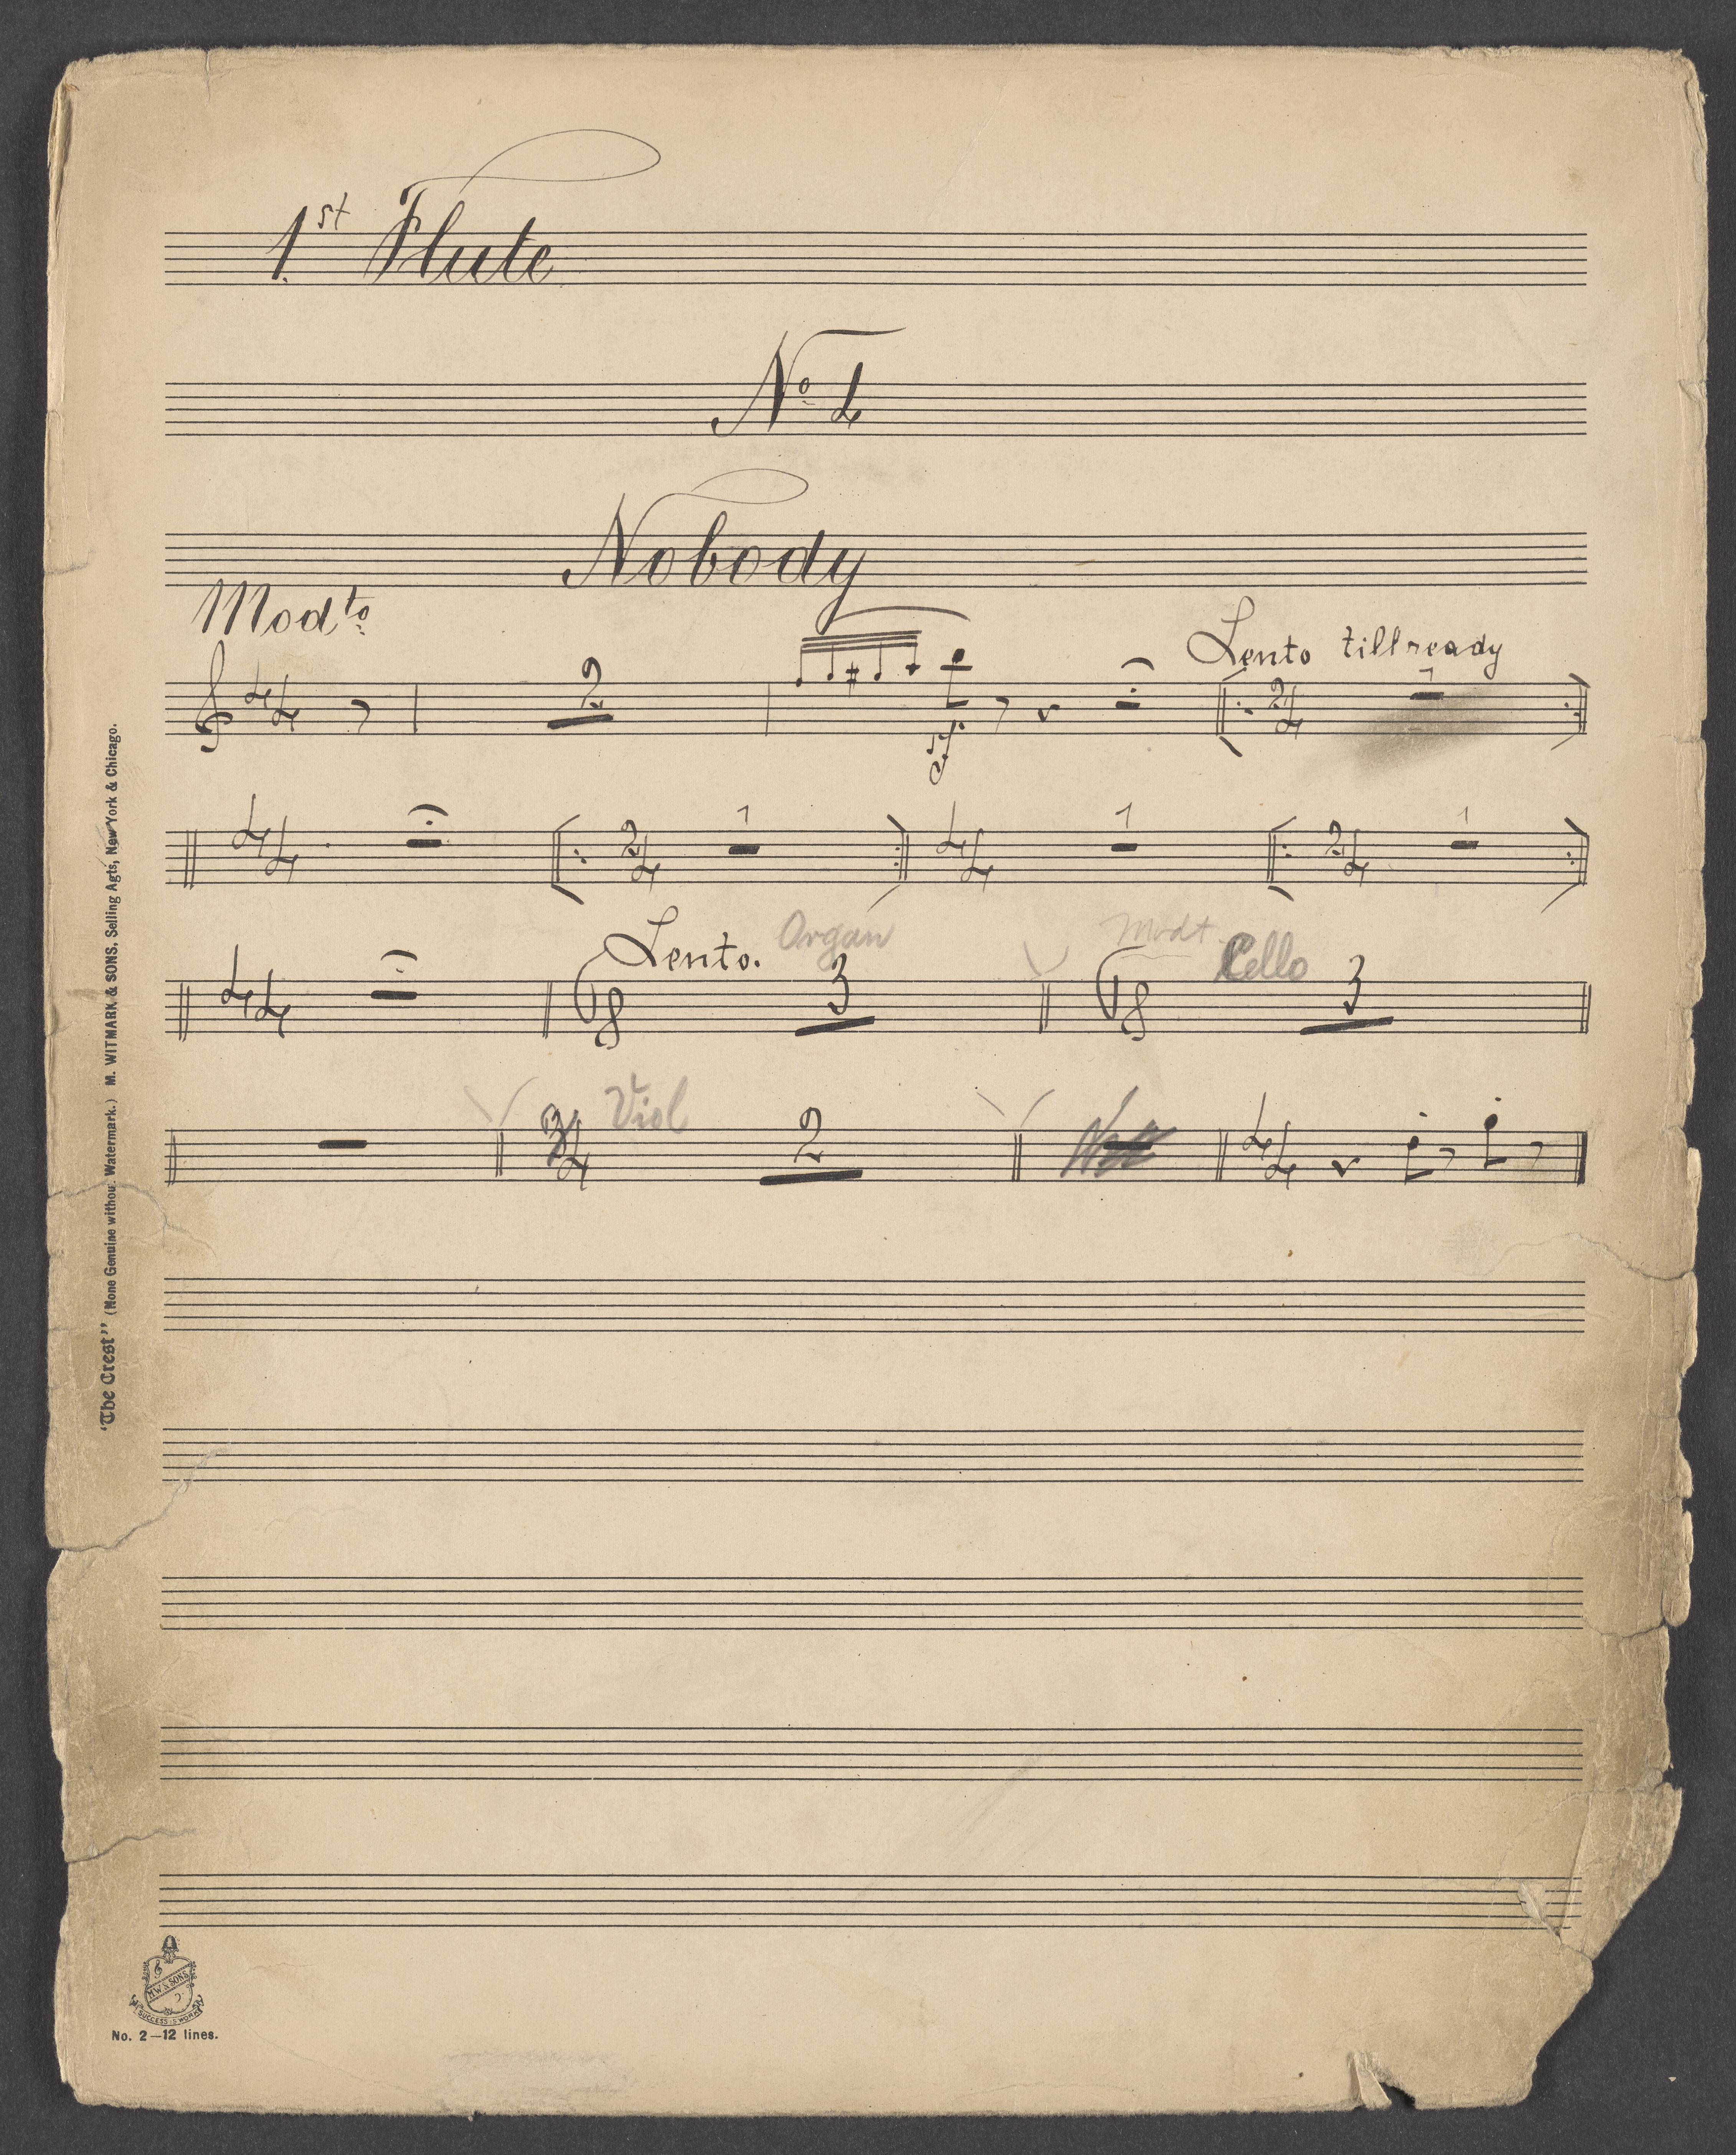 1st Flute
No 1
Nobody
Modto
2
Lento till ready
4 4
sf.
2 4
1
4 4
2 4
1
4 4
1
2 4
1
Lento. Organ
Modt
Cello
4 4
6 8
3
6 8
3
Viol
3 4
2
4 4
"The Crest" (None Genuine without Watermark.) M. WITMARK & SONS, Selling Agts, New York & Chicago.
M.W. & SONS
SUCCESS IS WORK
No. 2—12 lines.